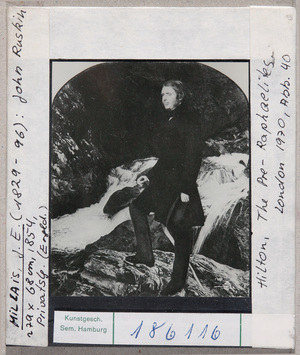 MILLAIS, J. E. (1829-96): John Ruskin
79 x 68 cm, 1854,
Privatslg. (Engld.)
Hilton, The Pre-Raphaelites
London 1970, Abb. 40
Kunstgesch.
Sem. Hamburg
186116